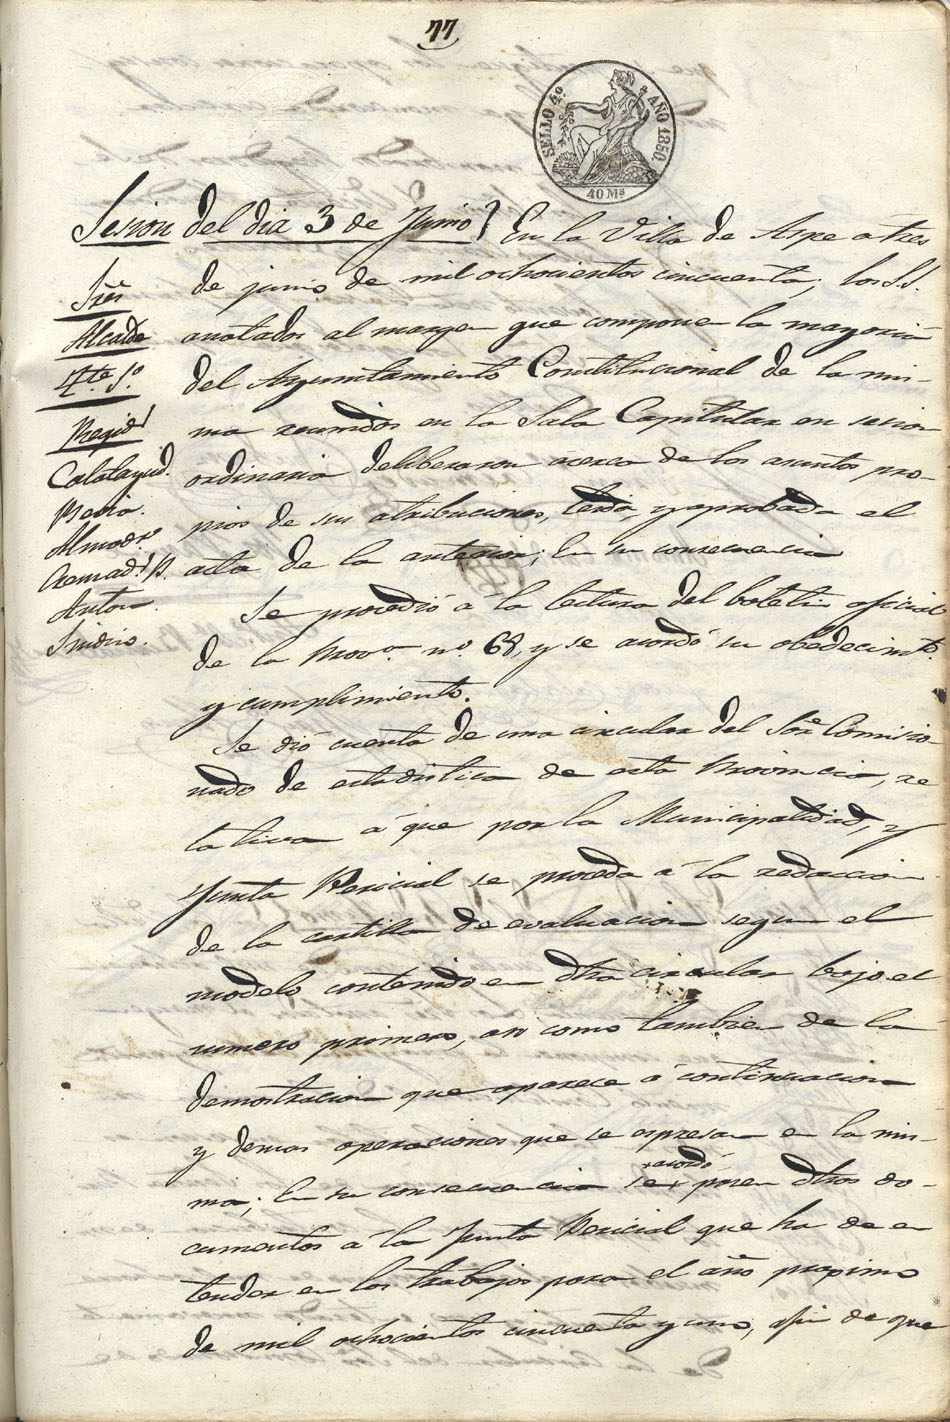 77
SELLO 4º AÑO 1850.
40 Ms
Sesion del dia 3 de Junio} En la Villa de Aspe a tres
de junio de mil ochocientos cincuenta, los SS.
anotados al margen que componen la mayoria
del Ayuntamiento Constitucional de la mis-
ma reunidos en la Sala Capitular en sesion
ordinaria deliberaron acerca de los asuntos pro-
pios de sus atribuciones, leida, y aprobada el
acta de la anterior; En su consecuencia
Sres
Alcalde
Tte 1º
Regid.s
Calatayud.
Almodr
Cremad.s
Anton.
Sindico.
Se procedió á la lectura del boletin oficial
de la Prov.a nº 68, y se acordó su obedecim.to
y cumplimiento.
Se dió cuenta de una circular del Sor Comicio
nado de estadistica de esta Provincia, re
lativa á que por la Municipalidad, y
Junta Pericial se proceda á la redaccion
de la cartilla de evaluacion segun el
modelo contenido en dha circular bajo el
numero primero, asi como tambien de la
demostracion que aparece á continuacion
y demas operaciones que se espresan en la mis-
ma; En su consecuencia se acordó pasen dhos do-
cumentos á la Junta Pericial que ha de en
tender en los trabajos para el año proximo
de mil ochocientos cincuenta y uno, afin de que